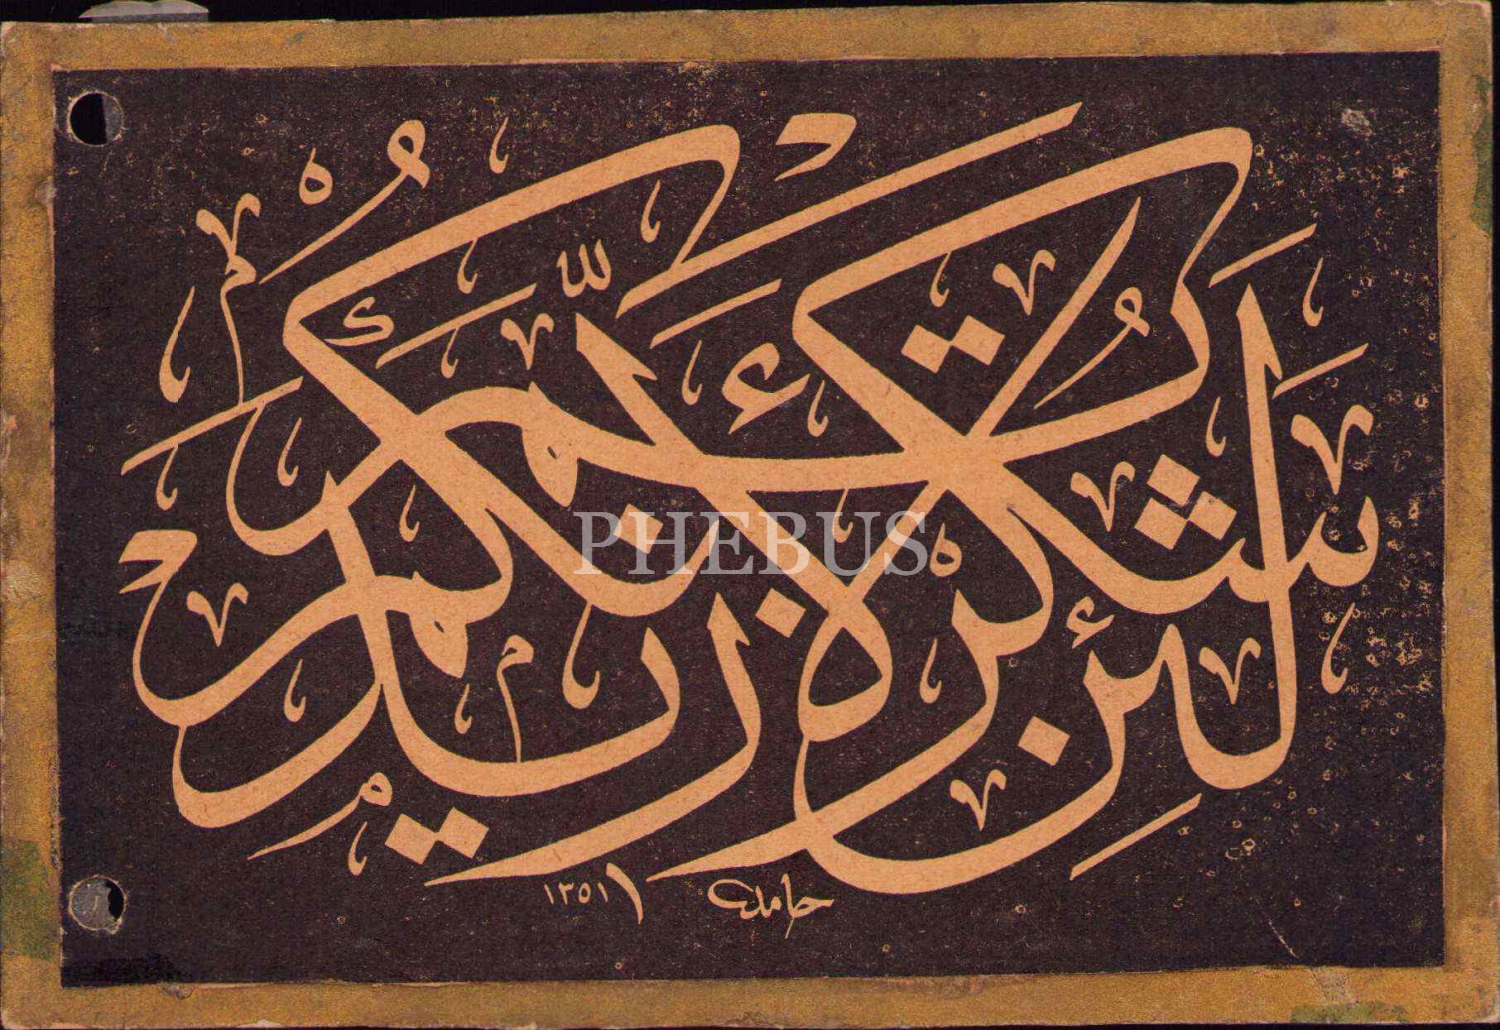 لَئِنْ شَكَرْتُمْ لَأَزِيدَنَّكُمْ
حامد ١٣٥١
PHEBUS